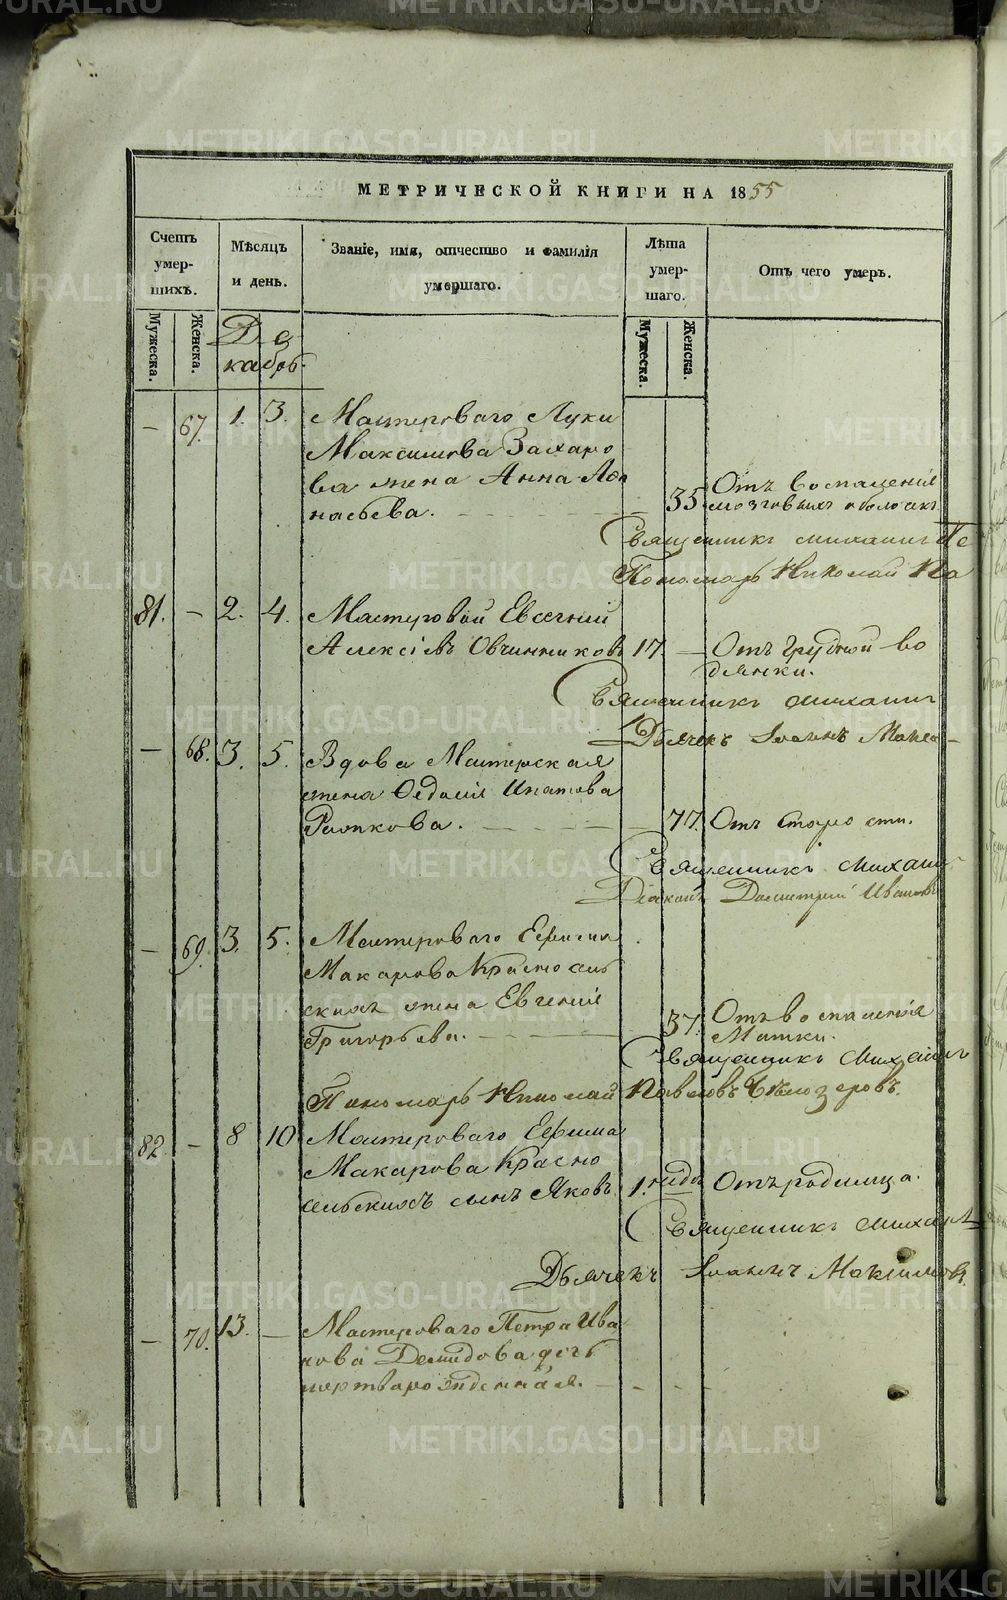 МЕТРИЧЕСКОЙ КНИГИ НА 1855
Счетъ умершихъ.
Мѣсяцъ и день.
Званіе, имя, отчество и фамилія умершаго.
Лѣта умершаго.
Отъ чего умеръ.
Мужеска.
Женска.
Мужеска.
Женска.
Де
кабрь.
— 67. 1. 3. Мастероваго Луки
Максимова Захаро
ва жена Анна Афа
насьева. 35 Отъ воспаленія
мозговыхъ оболочкъ
Священникъ Михаилъ Пе
Пономарь Николай Па
81. — 2. 4. Мастеровой Евгеній
Алексѣевъ Овчинниковъ 17. — Отъ грудной во
дянки.
Священникъ Михаилъ
Дьячекъ Іоаннъ Макси
— 68. 3. 5. Вдова Мастерская
жена Федосія Ипатова
77. Отъ старости.
Священникъ Михаилъ
Діаконъ Димитрій Ивановъ
— 69. 3. 5. Мастероваго Ефима
Макарова Красносель
скихъ жена Евгенія
Григорьева. 37. Отъ воспаленія
Матки.
Священникъ Михаилъ
Пономарь Николай Павловъ Бѣлозеровъ.
82. — 8 10 Мастероваго Ефима
Макарова Красно
сельскихъ сынъ Яковъ 1. года Отъ родимца.
Священникъ Михаилъ
Дьячекъ Іоаннъ Максимовъ
— 70. 13. — Мастероваго Петра Ива
нова Демидова дочь
мертворожденная.
METRIKI.GASO-URAL.RU